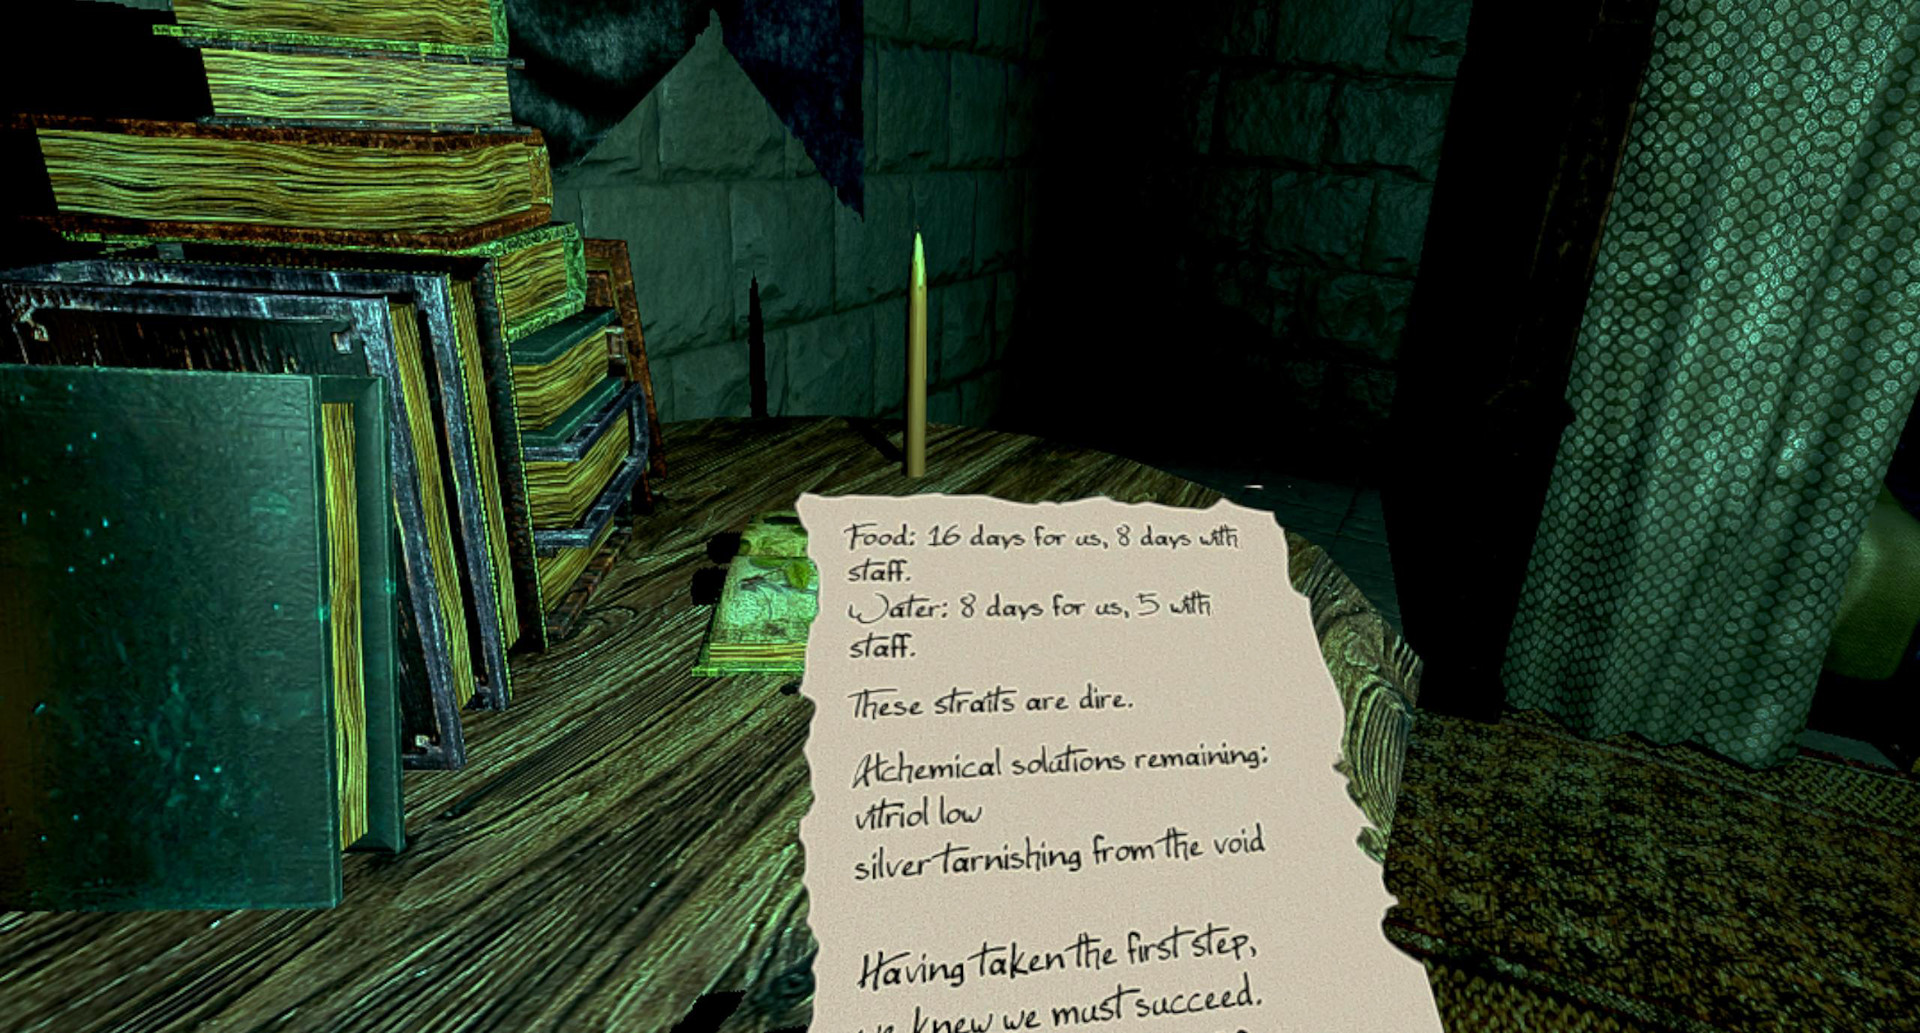 Food: 16 days for us, 8 days with
staff.
Water: 8 days for us, 5 with
staff.
These straits are dire.
Alchemical solutions remaining:
vitriol low
silver tarnishing from the void
Having taken the first step,
we knew we must succeed.